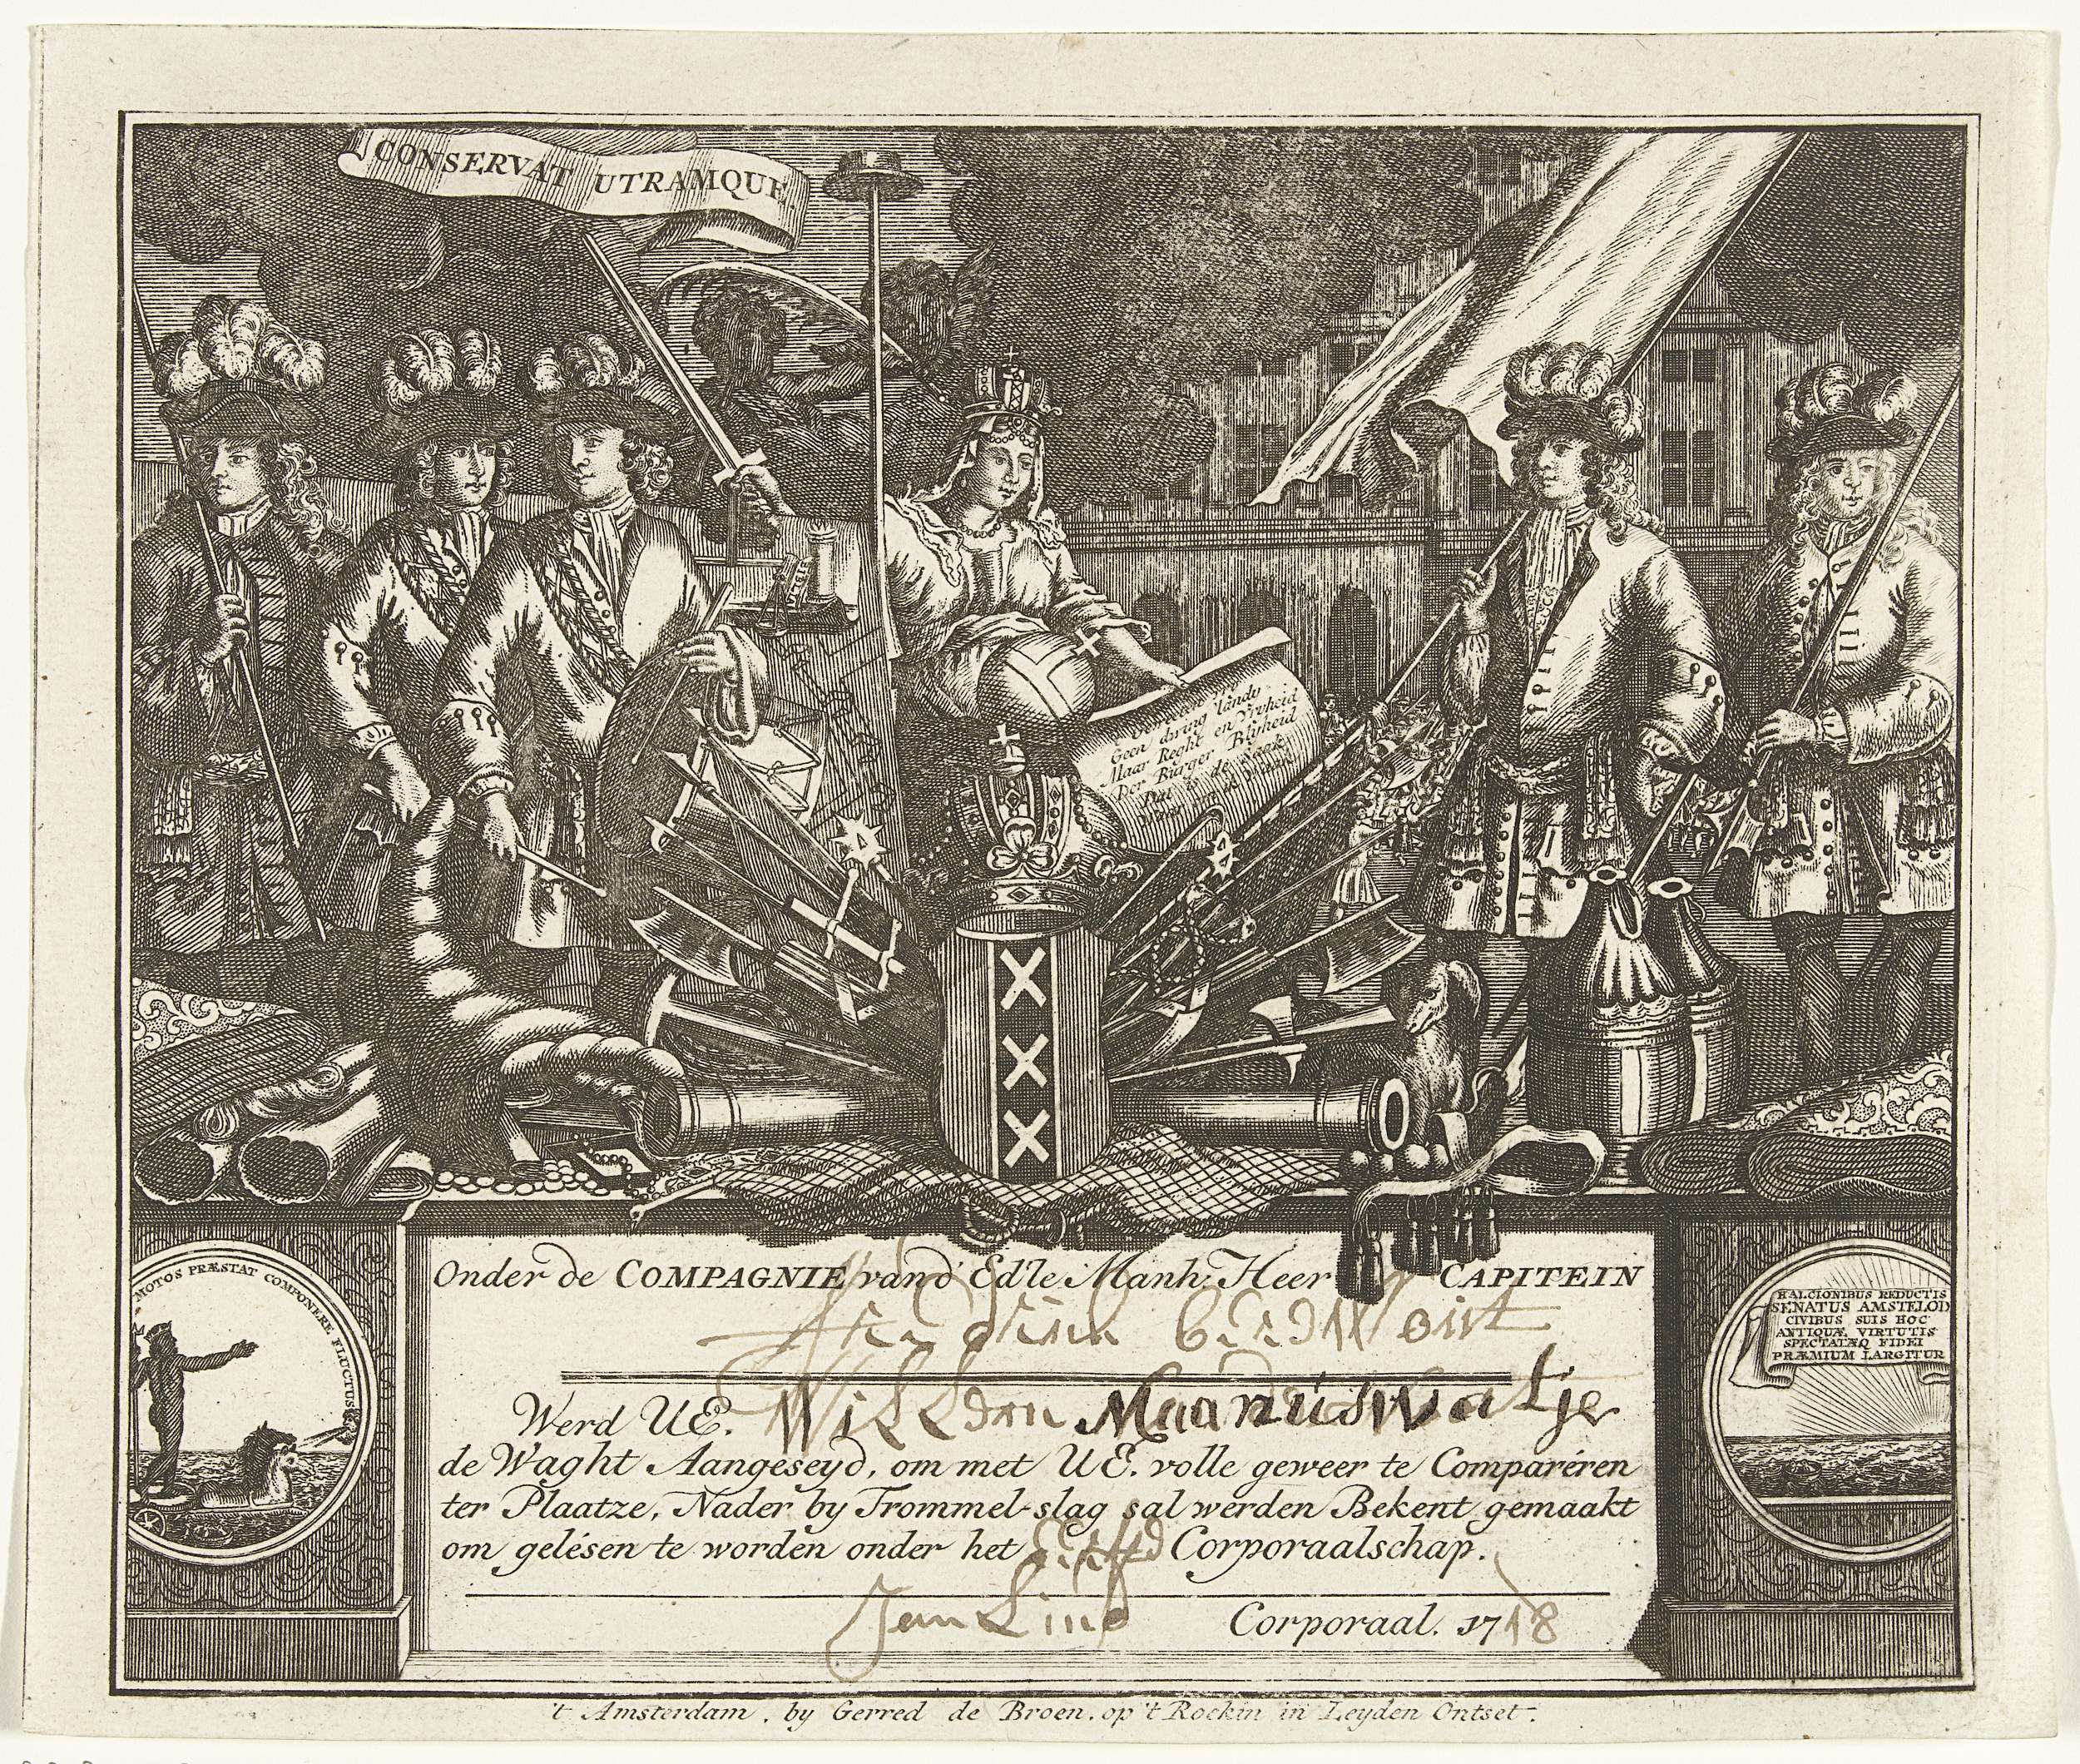 CONSERVAT UTRAMQUE
Geen dwing'landy
Maar Recht en Vryheid
Der Burger Blyheid
Dat is de Zaak
MOTOS PRÆSTAT COMPONERE FLUCTUS
HALCIONIBUS REDUCTIS
SENATUS AMSTELOD
CIVIBUS SUIS HOC
ANTIQUÆ VIRTUTIS
SPECTATÆQ FIDEI
PRÆMIUM LARGITUR
Onder de COMPAGNIE vand' Ed'le Manh: Heer CAPITEIN
Werd UE. Willem
de Waght Aangeseyd, om met UE. volle geweer te Comparéren
ter Plaatze, Nader by Trommel-slag sal werden Bekent gemaakt
om gelésen te worden onder het Corporaalschap.
Jan Corporaal. 1718
't Amsterdam, by Gerred de Broen, op 't Rockin in Leyden Ontset.